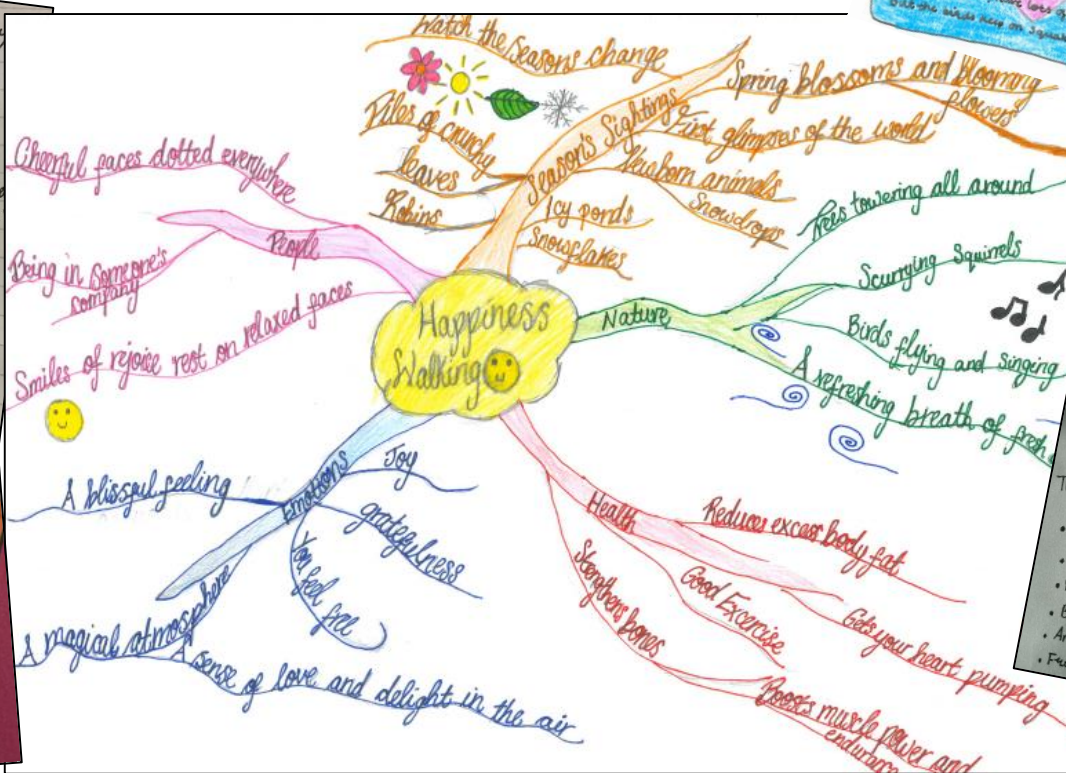 Happiness
Walking
Season's Sightings
Watch the seasons change
Piles of crunchy
leaves
Robins
Spring blossoms and blooming
flowers
First glimpses of the world
Newborn animals
Snowdrops
Icy ponds
Snowflakes
Nature
Trees towering all around
Scurrying Squirrels
Birds flying and singing
A refreshing breath of fresh
Health
Reduces excess body fat
Gets your heart pumping
Good Excercise
Strengthens bones
Boosts muscle power and
endurance
Emotions
Joy
gratefulness
You feel free
A blissful feeling
A magical atmosphere
A sense of love and delight in the air
People
Cheerful faces dotted everywhere
Being in someone's
company
Smiles of rejoice rest on relaxed faces
but the birds